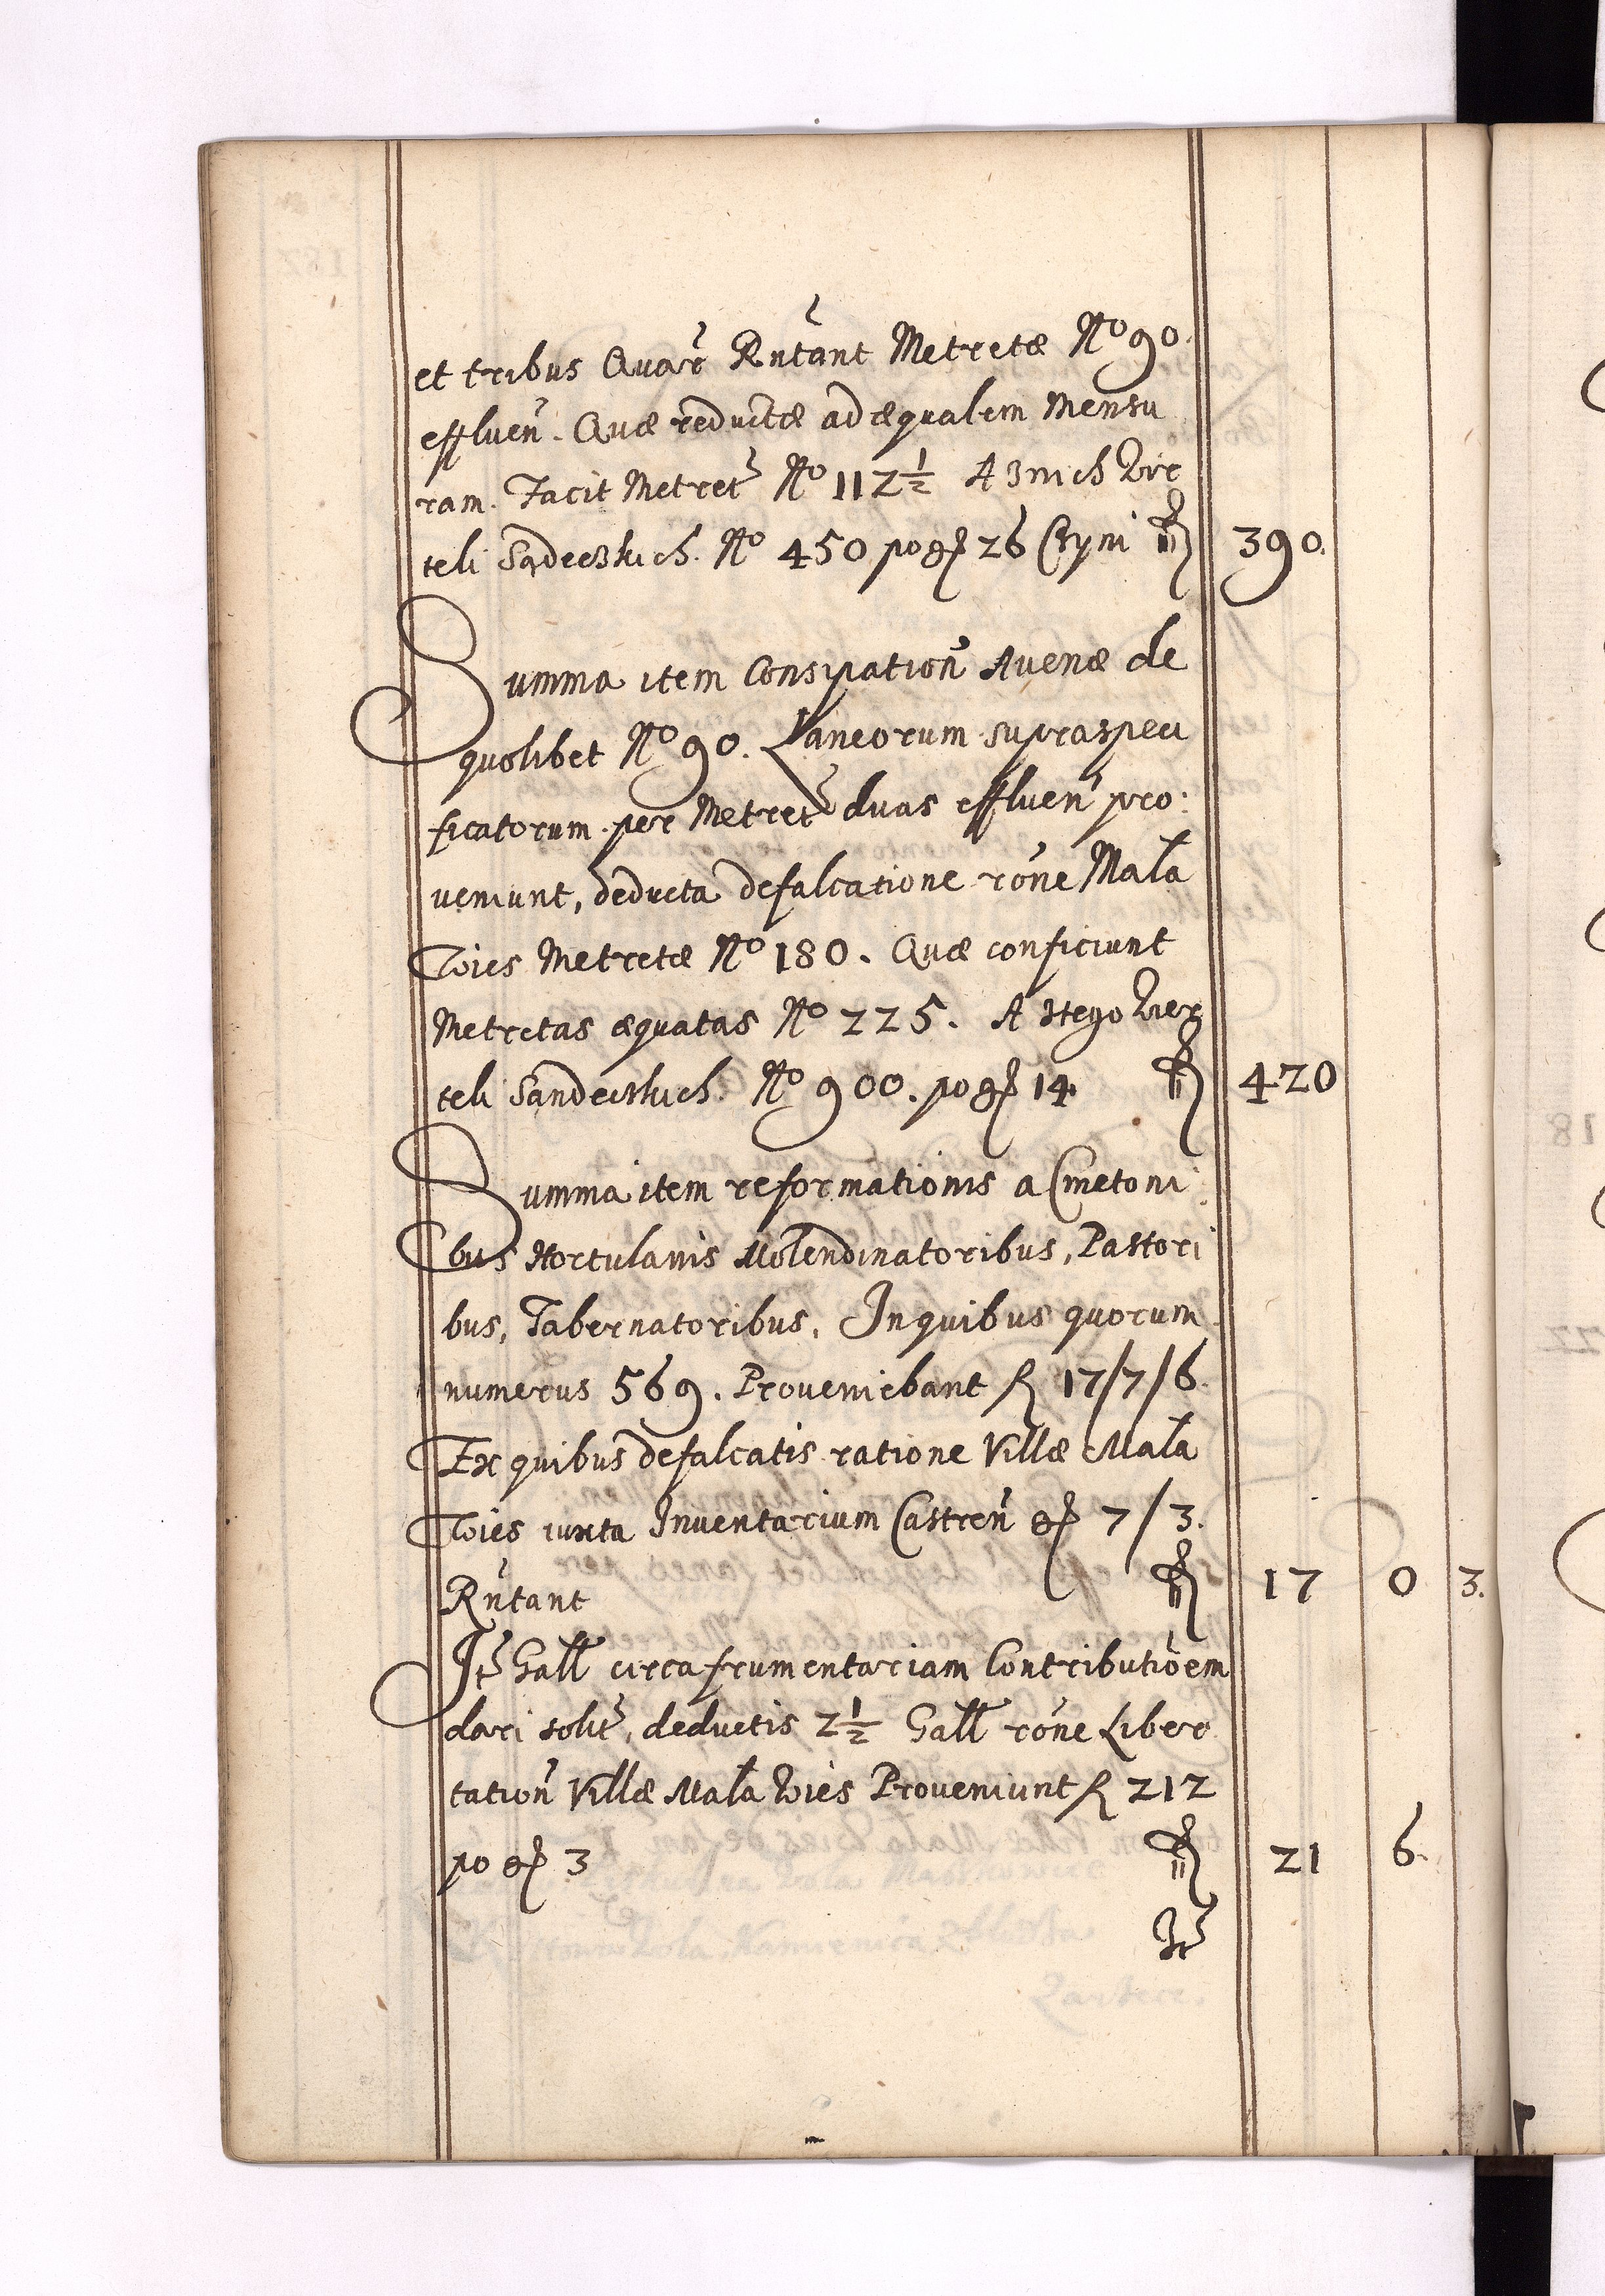 et tribus Quar̃ Rñtant Metretæ No 90.
effluen̄. Quæ reductæ ad æqualem Mensu
ram. Facit Metret̃ No 112 1/2 A z nich Wier
teli Sądeczkich. No 450 po gr 26 Czyni fl 390.
Summa item Consipation̄ Avenæ de
quolibet No 90. Laneorum supraspeci
ficatorum per Metret̃ duas effluen̄ pro:
veniunt, deducta defalcatione rõne Mała
Wies Metretæ No 180. Quæ conficiunt
Metretas æquatas No 225. A ztego Wier
teli Sandeczkich. No 900. po gr 14 fl 420
Summa item reformationis a Cmetoni
bus Hortulanis Molendinatoribus, Pastori
bus, Tabernatoribus. Inquibus quorum
numerus 569. Proveniebant fl 17/7/6.
Ex quibus defalcatis ratione Villæ Mała
Wies iuxta Inventarium Castren̄ gr 7/3.
Rñtant fl 17 0 3.
It̃ Gall circa frumentariam Contributiõem
dari solit̃, deductis 2 1/2 Gall rõne Liber
tation̄ Villæ Mała Wies Proveniunt fl 212
po gr 3 fl 21 6.
It̃